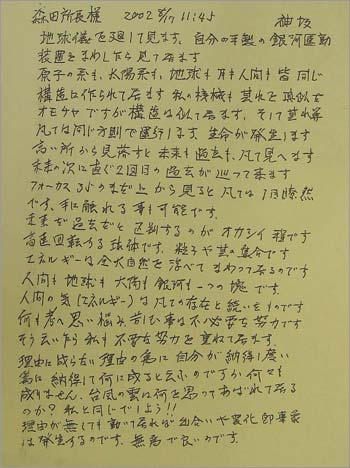 森田所長様 2002 5/17 11:45 神坂
地球儀を廻して見ます。自分の手製の銀河運動
装置をまわしたら見て居ます
原子の素も、太陽系も、地球も月も人間も皆同じ
構造に作られて居ます 私の機械も其れを真似た
オモチャですが構造は似て居ます。そして其れ等
凡ては同じ方則で運行します 生命が発生します
高い所から見落すと未来も過去も、凡て見へます
未来の次に直ぐ2回目の過去が巡って来ます
フォーカス の 上から見ると凡ては1目瞭然
です、手に触れる事も可能です、
未来を過去をと区別するのがオカシイ程です
高速回転する球体です。粒子や其の集合です
エネルギーは全大自然を浮べてまわって居るのです
人間も地球も太陽も銀河も一つの塊です
人間の気(エネルギー)は凡ての存在と続いたものです
何も考へ思い悩み苦む事は不必要な努力です
そう云いたら私も不必要な努力を重ねて居ます。
理由に成らない理由の為に自分が納得し度い
為に納得して何に成ると云ふのですか何にも
成りません、台風の雲は何を思ってあばれて居る
のか? 私と同じでしよう!!
理由が無くても動いて居れば出会いや変化即事象
は発生するのです、無為で良いのです、